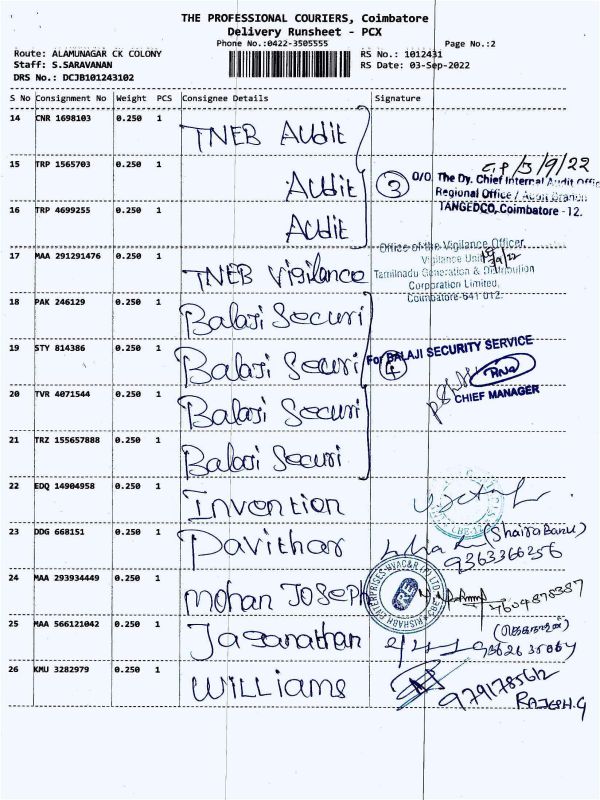 THE PROFESSIONAL COURIERS, Coimbatore
Delivery Runsheet - PCX
Phone No.:0422-3505555 Page No.:2
Route: ALAMUNAGAR CK COLONY RS No.: 1012431
Staff: S.SARAVANAN RS Date: 03-Sep-2022
DRS No.: DCJB101243102
S No Consignment No Weight PCS Consignee Details Signature
14 CNR 1698103 0.250 1 TNEB Audit
15 TRP 1565703 0.250 1 Audit
3/9/22
3 O/O The Dy. Chief Internal Audit Officer
Regional Office / Audit Branch
TANGEDCO, Coimbatore - 12.
16 TRP 4699255 0.250 1 Audit
17 MAA 291291476 0.250 1 TNEB Vigilance
Office of the Vigilance Officer,
Vigilance Unit
Tamilnadu Generation & Distribution
Corporation Limited,
Coimbatore-641 012.
18 PAK 246129 0.250 1 Balaji Securi
19 STY 814386 0.250 1 Balaji Securi
4 For BALAJI SECURITY SERVICE
CHIEF MANAGER
20 TVR 4071544 0.250 1 Balaji Securi
21 TRZ 155657888 0.250 1 Balaji Securi
22 EDQ 14904958 0.250 1 Invention
23 DDG 668151 0.250 1 Pavithar
(Shaira Banu)
9363366256
24 MAA 293934449 0.250 1 Mohan Joseph
RISHABH ENTERPRISES-HVAC&R (P) LTD CBE
7604878387
25 MAA 566121042 0.250 1 Jaganathan
(ஜெகநாதன்)
26 KMU 3282979 0.250 1 Williams
9791785612
RAJESH.G